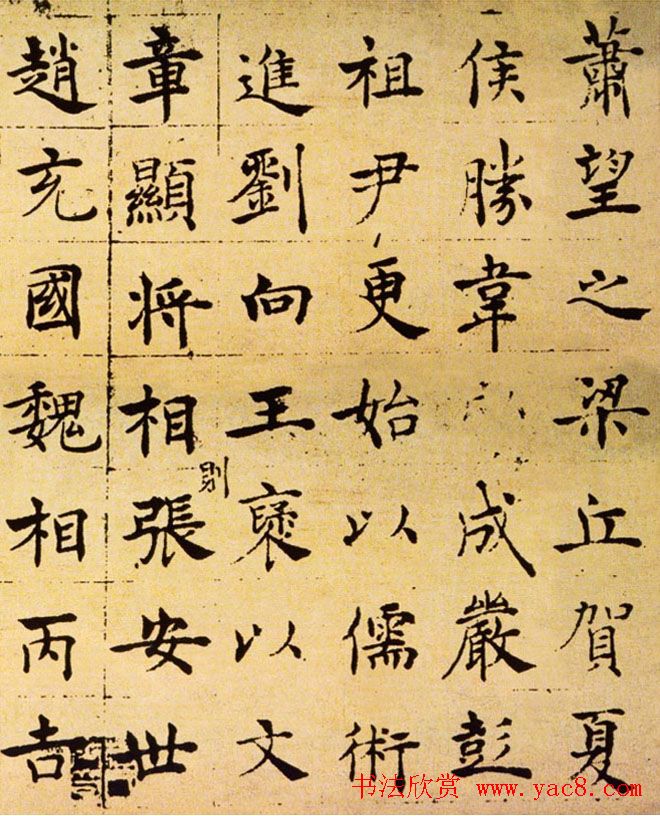 蕭望之梁丘賀夏
侯勝韋成嚴彭
祖尹更始以儒術
進劉向王褒以文
章顯将相則張安世
趙充國魏相丙吉
书法欣赏 www.yac8.com